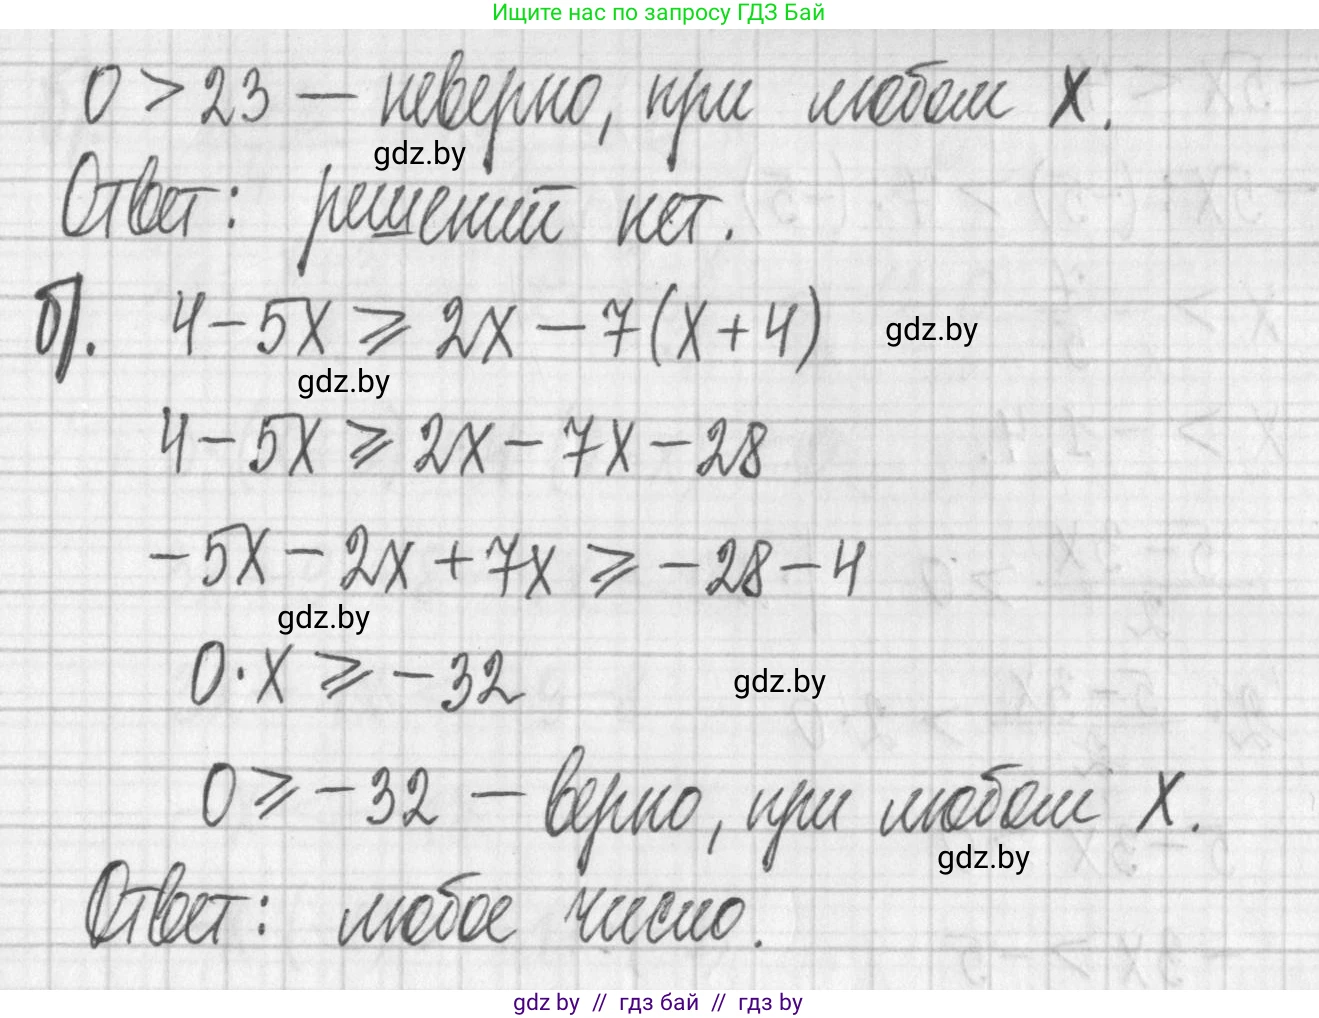 Ищите нас по запросу ГДЗ Бай
0 > 23 — неверно, при любом x.
gdz.by
Ответ: решений нет.
б). 4 - 5x ⩾ 2x - 7(x + 4)
gdz.by
gdz.by
4 - 5x ⩾ 2x - 7x - 28
-5x - 2x + 7x ⩾ -28 - 4
gdz.by
0 · x ⩾ -32
gdz.by
0 ⩾ -32 — верно, при любом x.
gdz.by
Ответ: любое число.
gdz by // гдз бай // гдз by